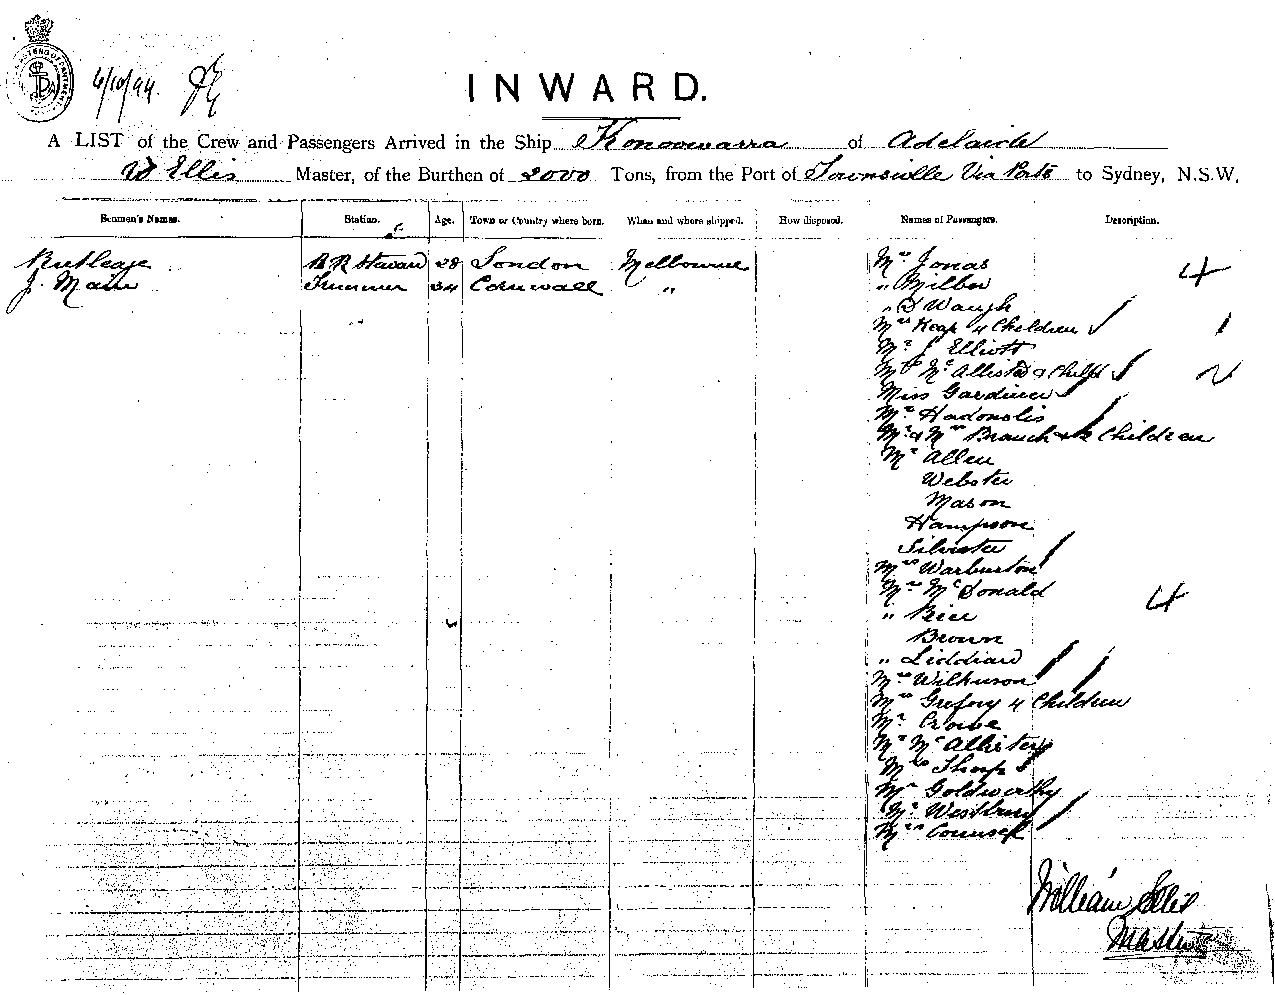 6/10/94
INWARD.
A LIST of the Crew and Passengers Arrived in the Ship Konoowarra of Adelaide
W Ellis Master, of the Burthen of 2000 Tons, from the Port of Townsville Via Ports to Sydney, N.S.W.
Seamen's Names. Station. Age. Town or Country where born. When and where shipped. How disposed. Names of Passengers. Description.
Rutleage B R Steward 28 London Melbourne Mr Jonas 4
J. Main Trimmer 34 Cornwall " " Milber
" D Waugh
Mrs Keap 4 Children 1
Mr J Elliott
Mrs McAllister & Child 2
Miss Gardiner
Mr Hadonolis
Mr & Mrs Branch & 2 Children
Mr Allen
Webster
Mason
Hampson
Silvester
Mrs Warburton
Mr McDonald 4
" Rice
Brown
" Liddiard
Mrs Wilkinson
Mrs Gregory 4 Children
Mr Crowe
Mr McAllister
Mrs Thorp
Mr Goldworthy
Mr Westbury
Mrs Counsel
William Ellis
Master